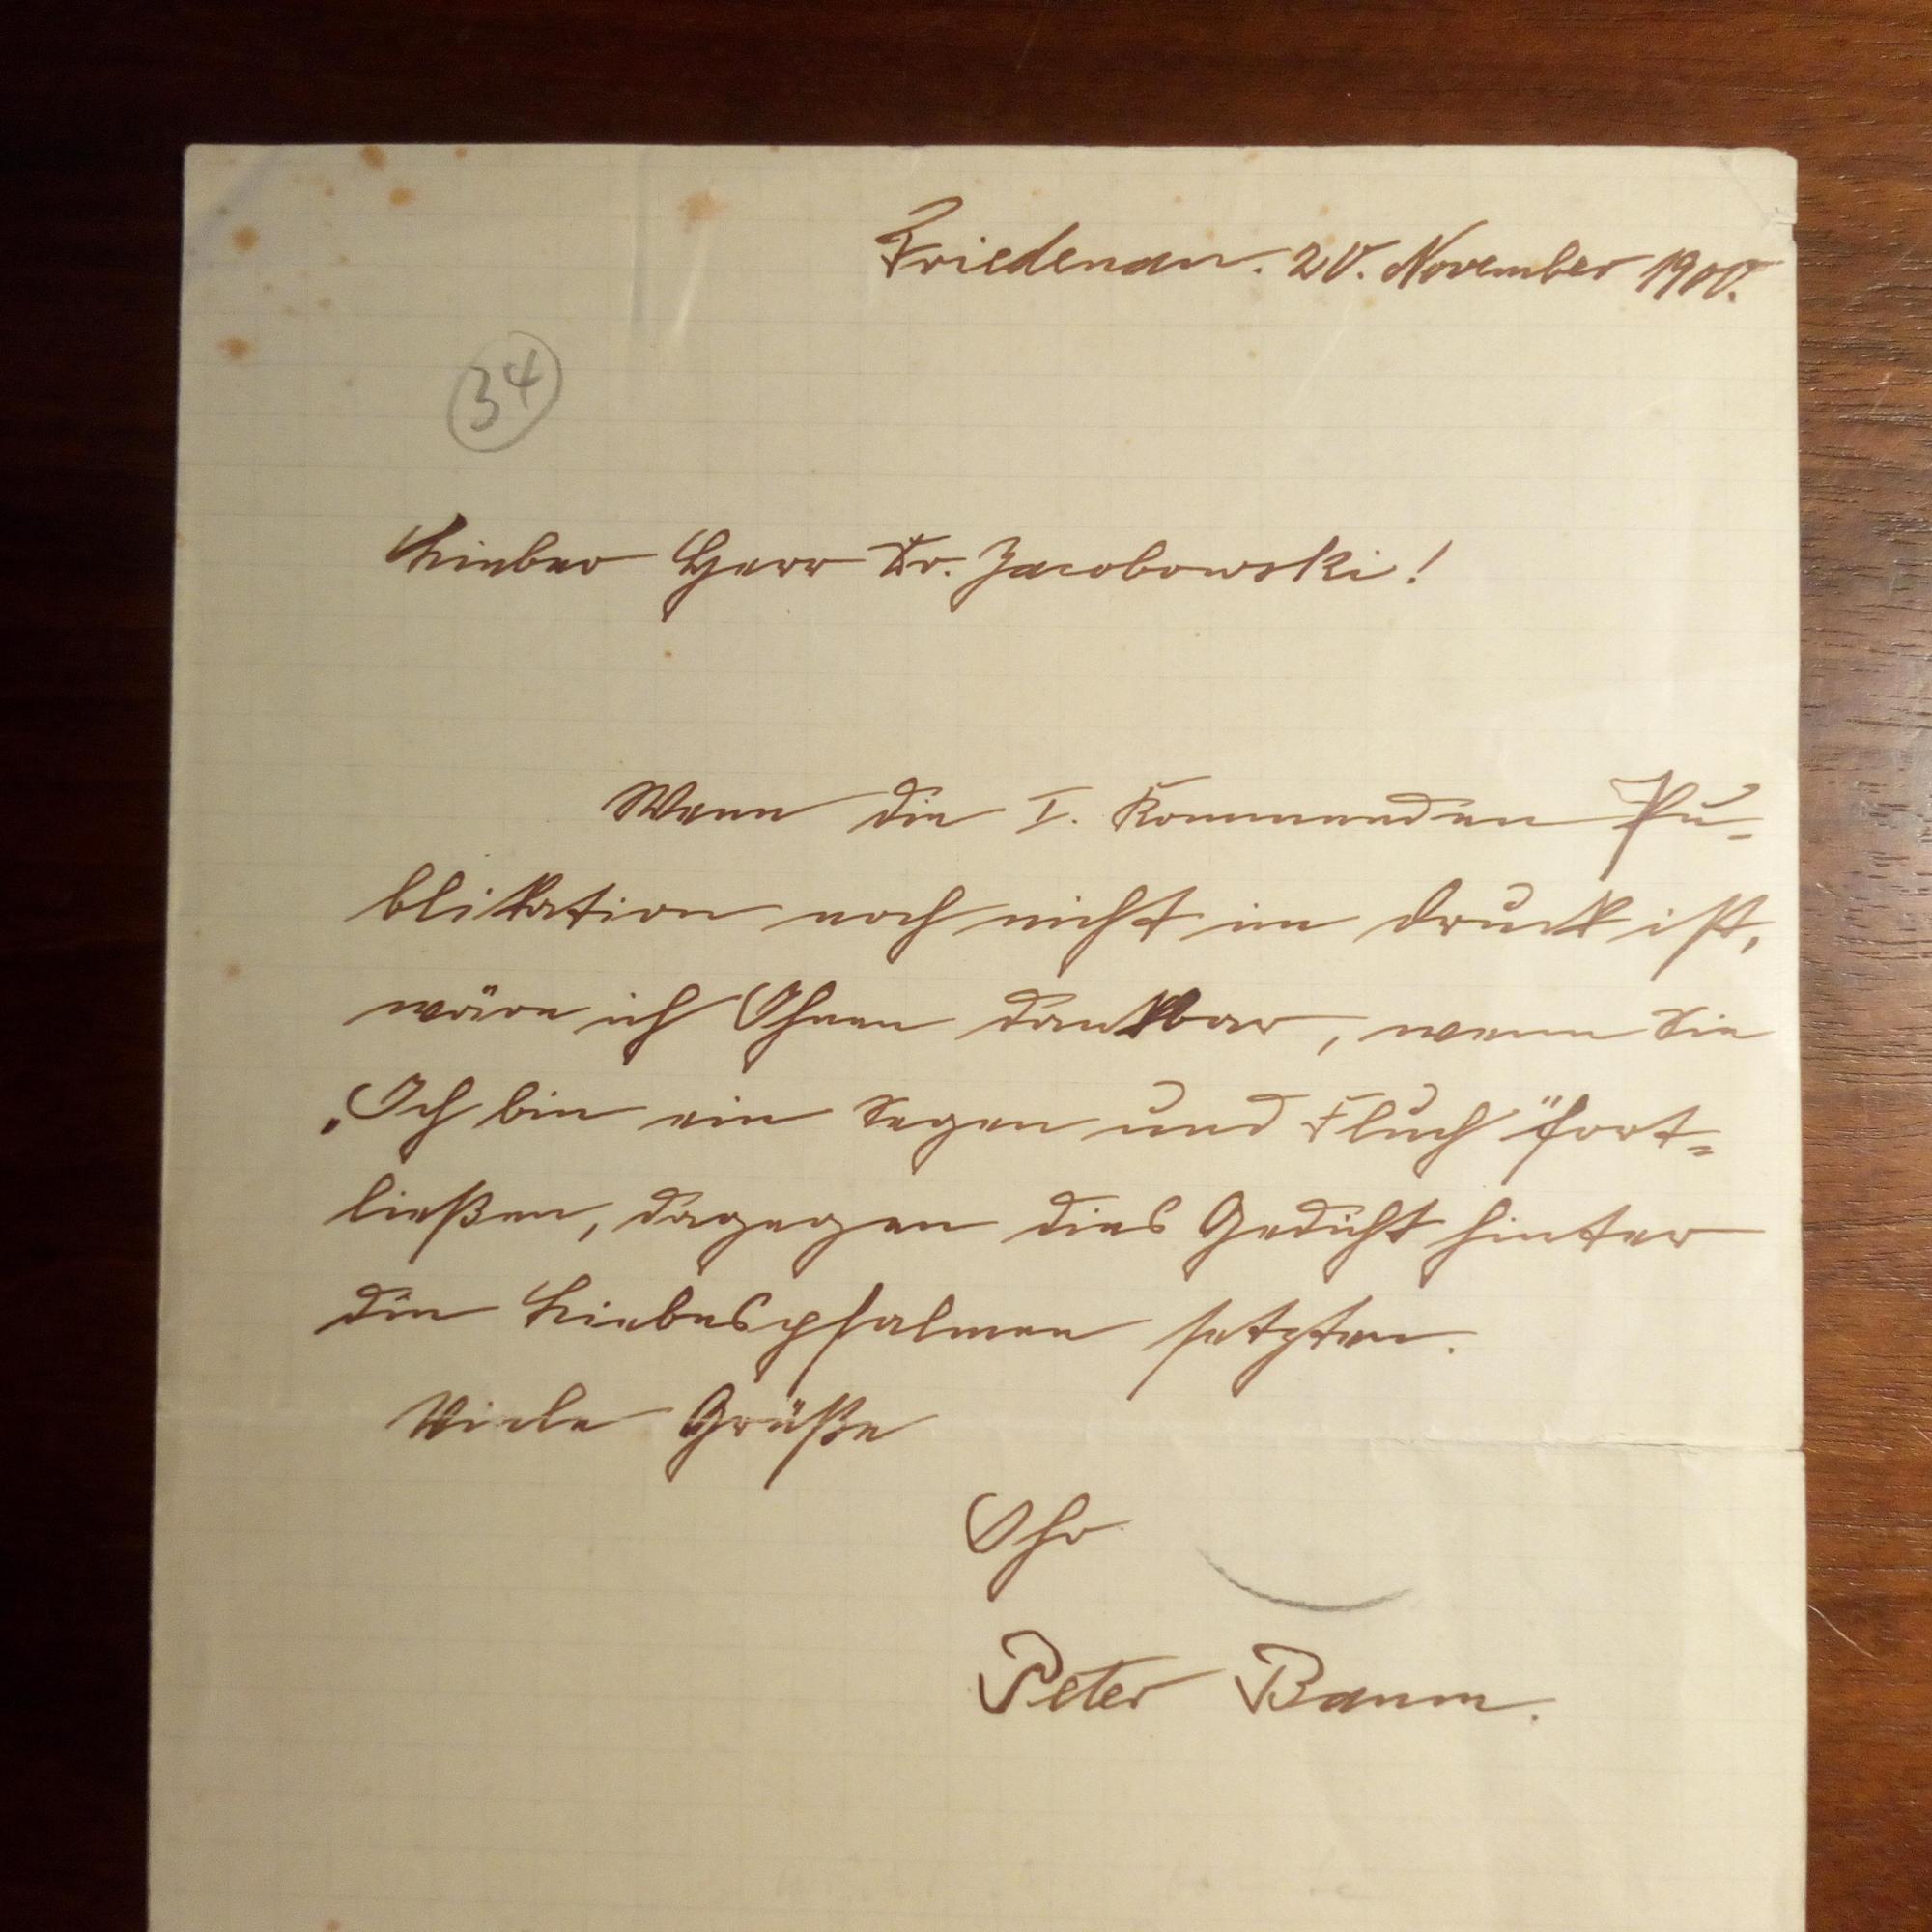 Friedenau. 20. November 1900.
34
Lieber Herr Dr. Jacobowski!
Wenn die I. Kommenden Pu-
blikation noch nicht im Druck ist,
wäre ich Ihnen dankbar, wenn Sie
„Ich bin ein Segen und Fluch" fort-
ließen, dagegen dies Gedicht hinter
die Liebespsalmen setzten.
Viele Grüße
Ihr
Peter Baum.